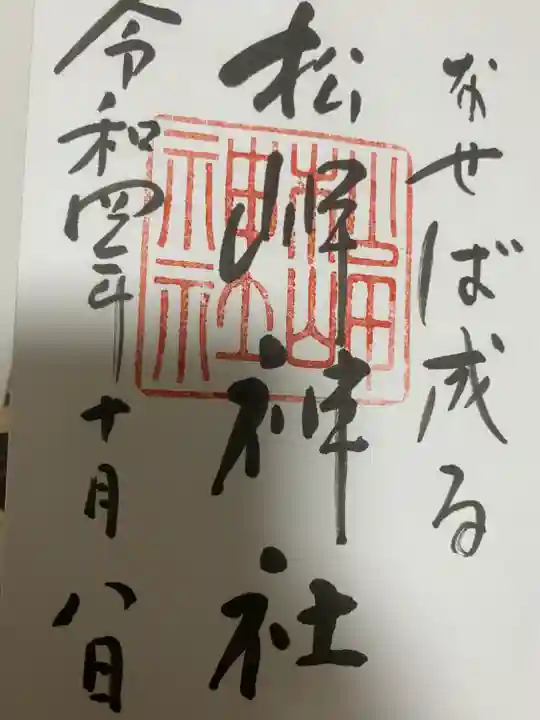 なせば成る
松岬神社
松岬
神社
令和四年十月八日